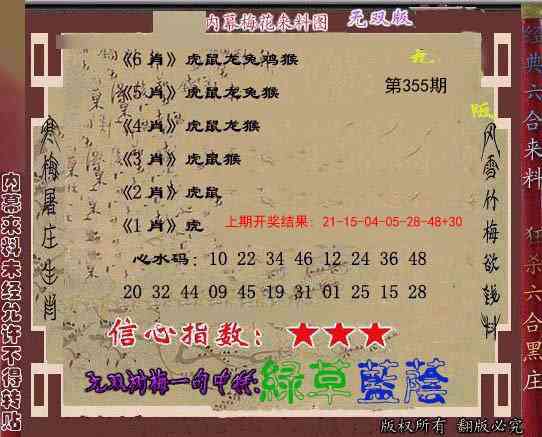 内幕梅花来料图 无双版
《6 肖》虎鼠龙兔鸡猴
《5 肖》虎鼠龙兔猴
第355期
《4 肖》虎鼠龙猴
《3 肖》虎鼠猴
《2 肖》虎鼠
《1 肖》虎
上期开奖结果：21-15-04-05-28-48+30
心水码：10 22 34 46 12 24 36 48
20 32 44 09 45 19 31 01 25 15 28
信心指数：★★★
无双浏梅一的中释:綠草藍蔭
版权所有 翻版必究
寒梅屠庄生肖
内幕来料未经允许不得转贴
风雪竹梅欲钱料
经典六合来料
狂杀六合黑庄